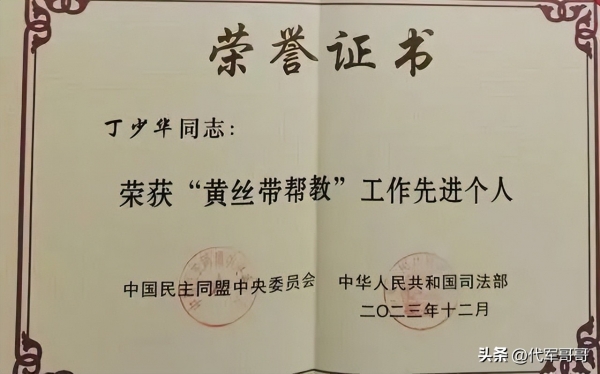 荣誉证书
丁少华同志：
荣获“黄丝带帮教”工作先进个人
中国民主同盟中央委员会
中华人民共和国司法部
二〇二三年十二月
头条 @代军哥哥